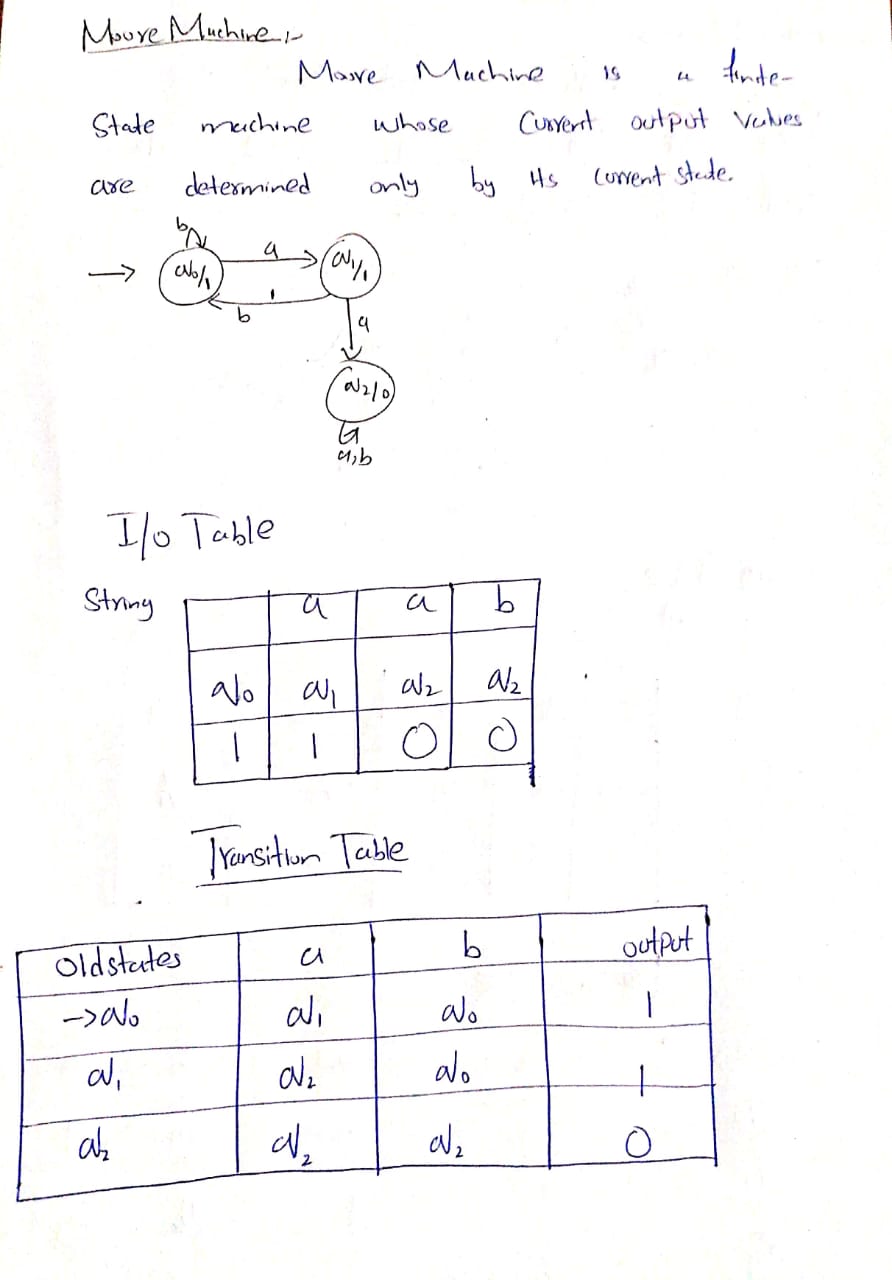 Moore Machine :-
Moore Machine is a finite-
State machine whose Current output Values
are determined only by its current state.
b
→ q0/1 a q1/1
b
a
q2/0
a,b
I/o Table
String a a b
q0 q1 q2 q2
1 1 0 0
Transition Table
Old states a b output
→q0 q1 q0 1
q1 q2 q0 1
q2 q2 q2 0